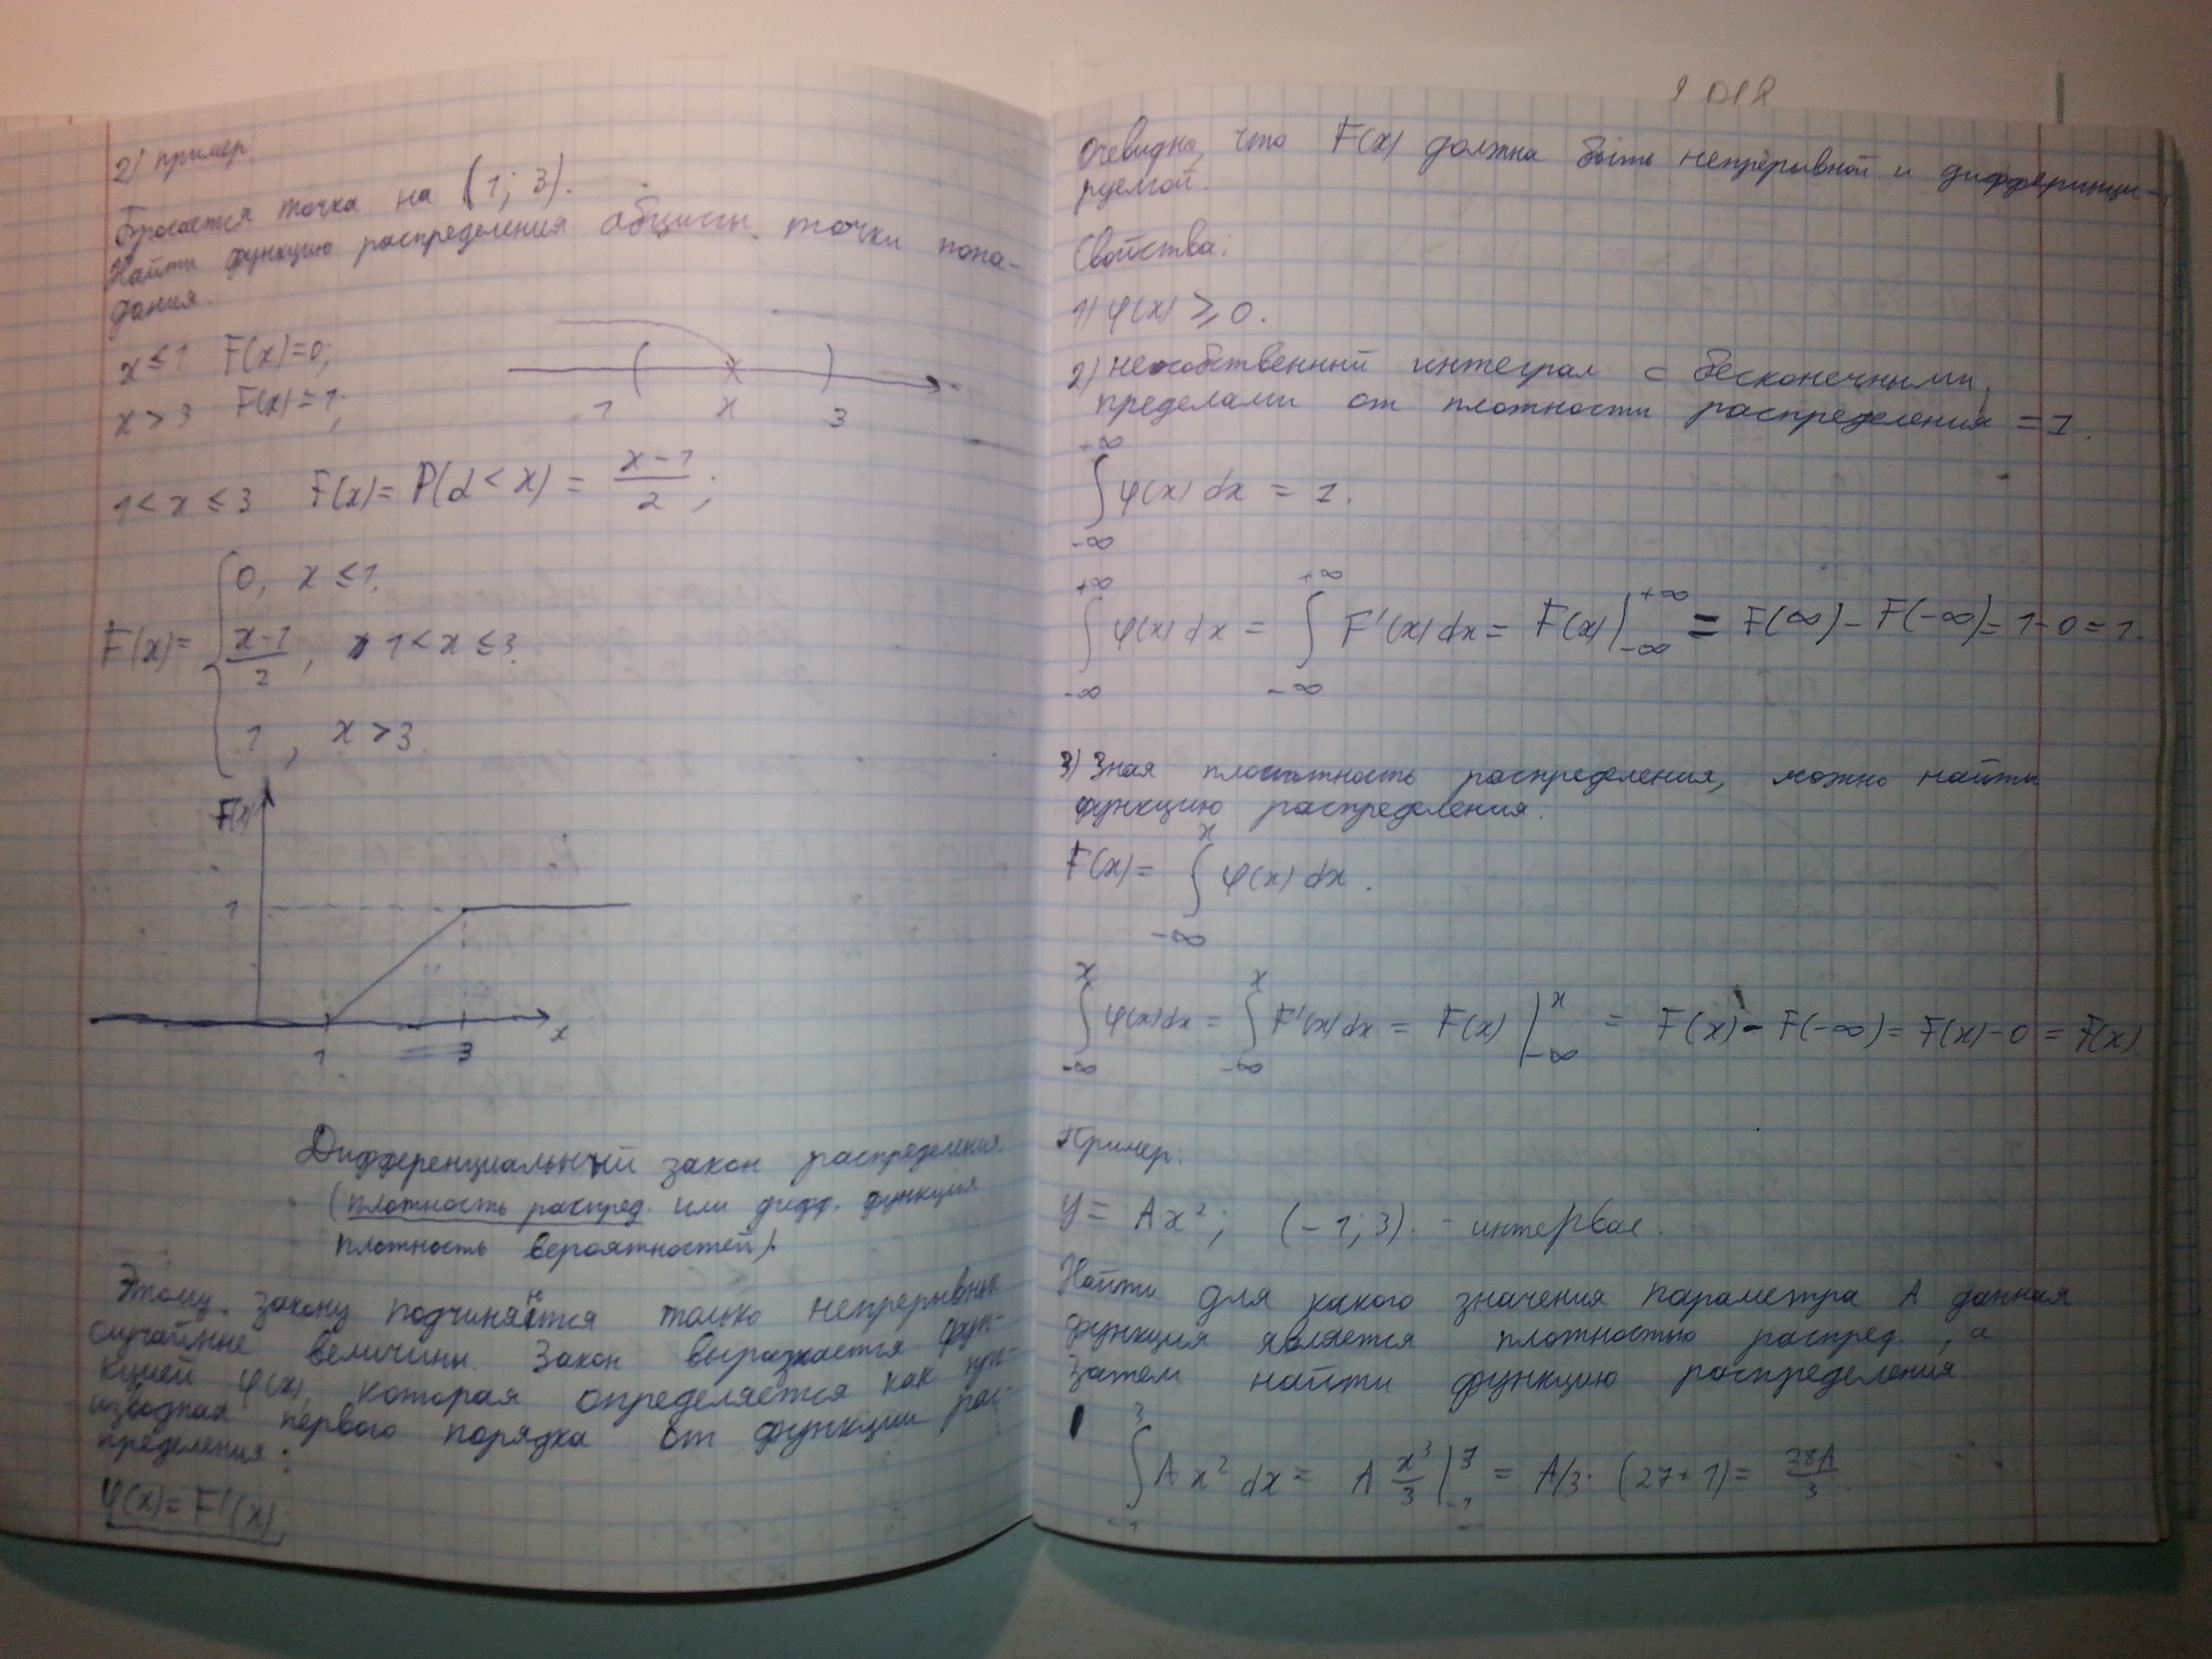 2) пример.
Бросается точка на (1; 3).
Найти функцию распределения абциссы точки попа-
дания.
x ≤ 1 F(x)=0;
x > 3 F(x)=1;
1 x 3
1 < x ≤ 3 F(x)= P(α < x) = (x-1)/2;
F(x)= { 0, x ≤ 1.
(x-1)/2, 1 < x ≤ 3.
1, x > 3.
F(x)
1
1 3 x
Дифференциальный закон распределения.
(плотность распред. или дифф. функция
плотность вероятностей).
Этому закону подчиняются только непрерывные
случайные величины. Закон выражается фун-
кцией φ(x), которая определяется как про-
изводная первого порядка от функции рас-
пределения:
φ(x)= F'(x);
Очевидно, что F(x) должна быть непрерывной и дифференци-
руемой.
Свойства:
1) φ(x) ≥ 0.
2) несобственный интеграл с бесконечными
пределами от плотности распределения = 1.
∫_{-∞}^{+∞} φ(x) dx = 1.
∫_{-∞}^{+∞} φ(x) dx = ∫_{-∞}^{+∞} F'(x) dx = F(x)|_{-∞}^{+∞} = F(∞) - F(-∞) = 1-0 = 1.
3) Зная плотность распределения, можно найти
функцию распределения.
F(x)= ∫_{-∞}^{x} φ(x) dx.
∫_{-∞}^{x} φ(x) dx = ∫_{-∞}^{x} F'(x) dx = F(x)|_{-∞}^{x} = F(x) - F(-∞) = F(x) - 0 = F(x)
Пример:
y = Ax²; (-1; 3). - интервал.
Найти для какого значения параметра A данная
функция является плотностью распред., а
затем найти функцию распределения.
∫_{-1}^{3} A x² dx = A x³/3 |_{-1}^{3} = A/3 · (27+1) = 28A/3